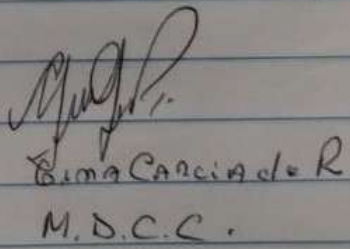 Gema Garcia de R
M.D.C.C.